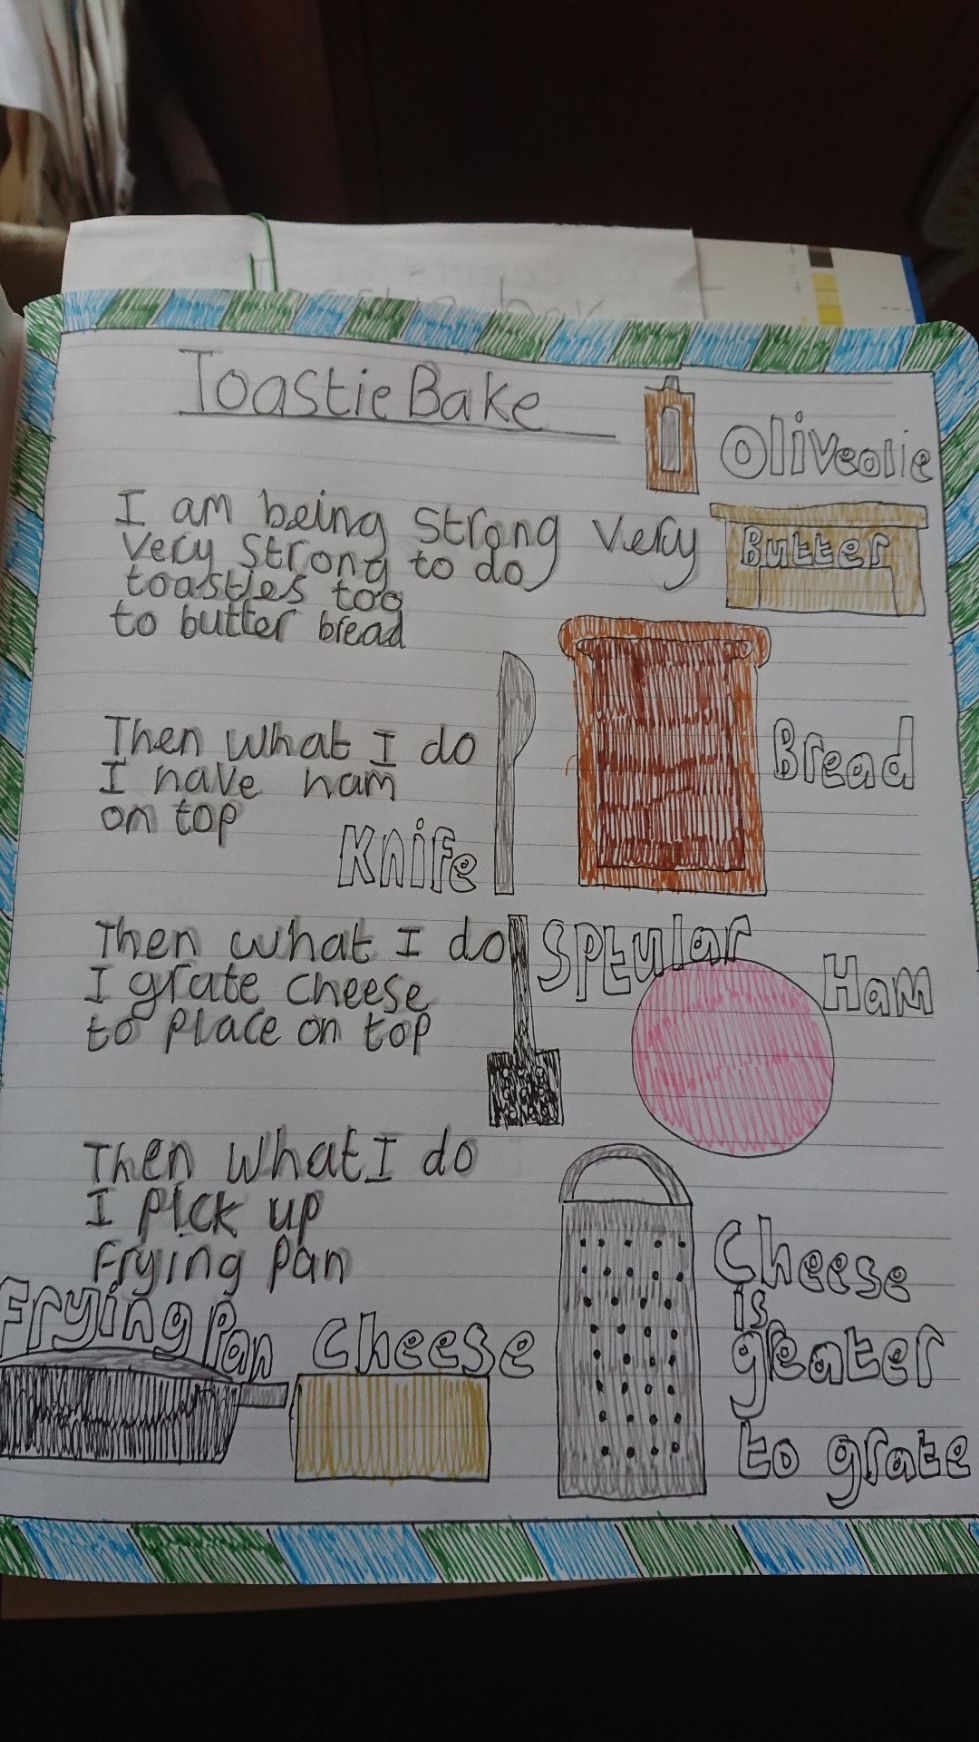 Toastie Bake
Oliveolie
I am being strong very
very strong to do
toasties too
to butter bread
Butter
Then what I do
I have ham
on top
Knife
Bread
Then what I do
I grate cheese
to place on top
Sptular
Ham
Then what I do
I pick up
Frying Pan
Frying Pan
Cheese
Cheese
is
greater
to grate